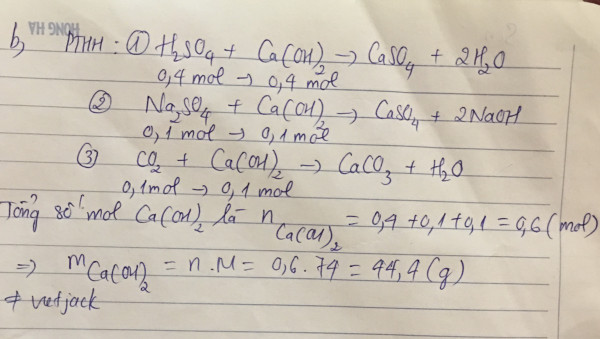 HỒNG HÀ
b, PTHH: ① H₂SO₄ + Ca(OH)₂ → CaSO₄ + 2H₂O
0,4 mol → 0,4 mol
② Na₂SO₄ + Ca(OH)₂ → CaSO₄ + 2NaOH
0,1 mol → 0,1 mol
③ CO₂ + Ca(OH)₂ → CaCO₃ + H₂O
0,1mol → 0,1 mol
Tổng số mol Ca(OH)₂ là n Ca(OH)₂ = 0,4 + 0,1 + 0,1 = 0,6 (mol)
=> m Ca(OH)₂ = n.M = 0,6.74 = 44,4 (g)
# vietjack